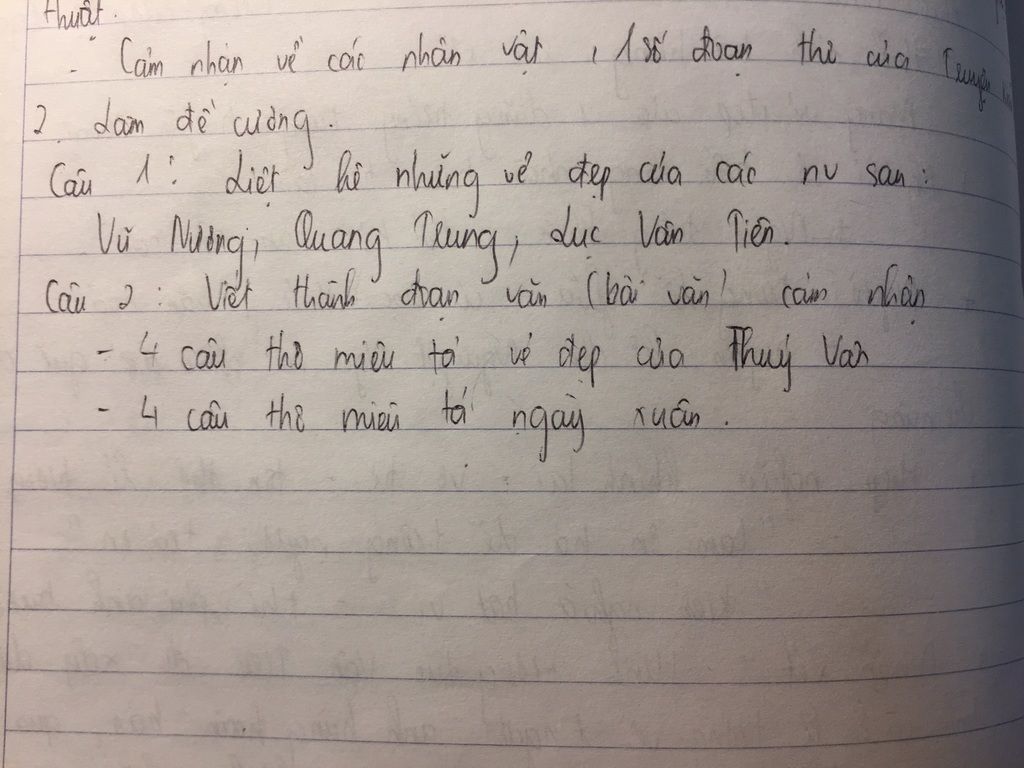 thuật.
- Cảm nhận về các nhân vật, 1 số đoạn thơ của Truyện
2 Làm đề cương.
Câu 1: Liệt kê những vẻ đẹp của các nv sau:
Vũ Nương, Quang Trung, Lục Vân Tiên.
Câu 2: Viết thành đoạn văn (bài văn) cảm nhận
- 4 câu thơ miêu tả vẻ đẹp của Thuý Vân
- 4 câu thơ miêu tả ngày xuân.